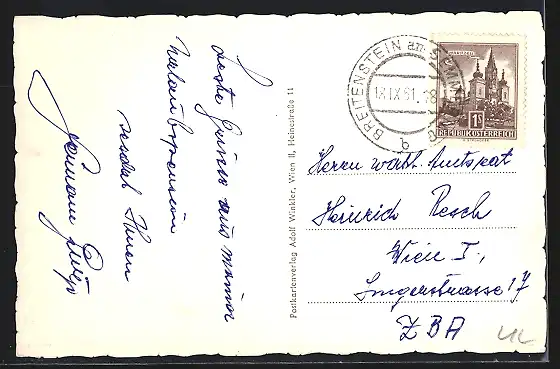 Beste Grüsse aus meiner
Urlaubspension
sendet Ihnen
Postkartenverlag Adolf Winkler, Wien II, Heinestraße 11
BREITENSTEIN am SEMMERING
18.IX.61.18
b
MARIAZELL
1S
REPUBLIK ÖSTERREICH
Herrn wirkl. Amtsrat
Heinrich Resch
Wien I.,
Singerstrasse 17
ZBA